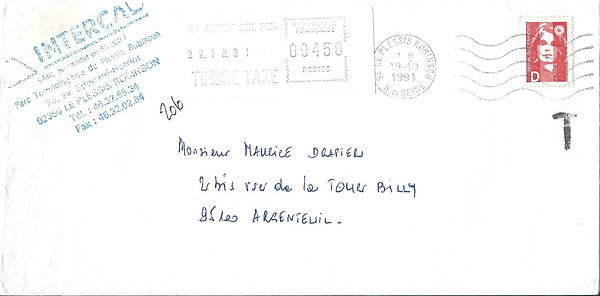 INTERCAL
Parc Technologique du Plessis Robinson
92350 LE PLESSIS ROBINSON
Tél : 46.32.85.34
Fax : 46.32.02.84
22.10.91
TIMBRE TAXE
00450
POSTES
LE PLESSIS ROBINSON
7 H
19-10
1991
HTS DE SEINE
D
T
206
Monsieur MAURICE DRAPIER
2 bis rue de la TOUR BILLY
95100 ARGENTEUIL.